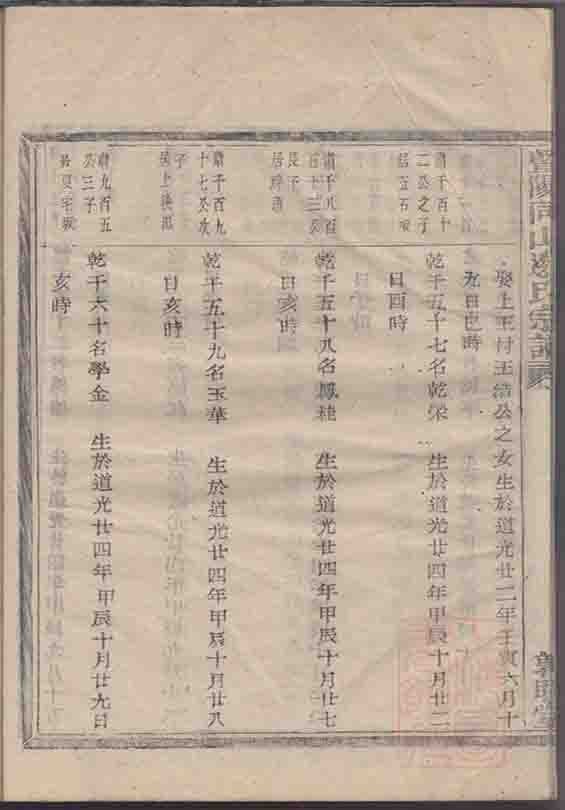 娶上王村王浩公之女生於道光廿二年壬寅六月十
九日巳時
肅千百十
二公之子
乾千五十七名乾榮 生於道光廿四年甲辰十月廿二
日酉時
肅千八百
長子
乾千五十八名鳳桂 生於道光廿四年甲辰十月廿七
日亥時
肅千百九
十七公次
子
乾千五十九名玉華 生於道光廿四年甲辰十月廿八
日亥時
肅九百五
公三子
乾千六十名學金 生於道光廿四年甲辰十月廿九日
亥時